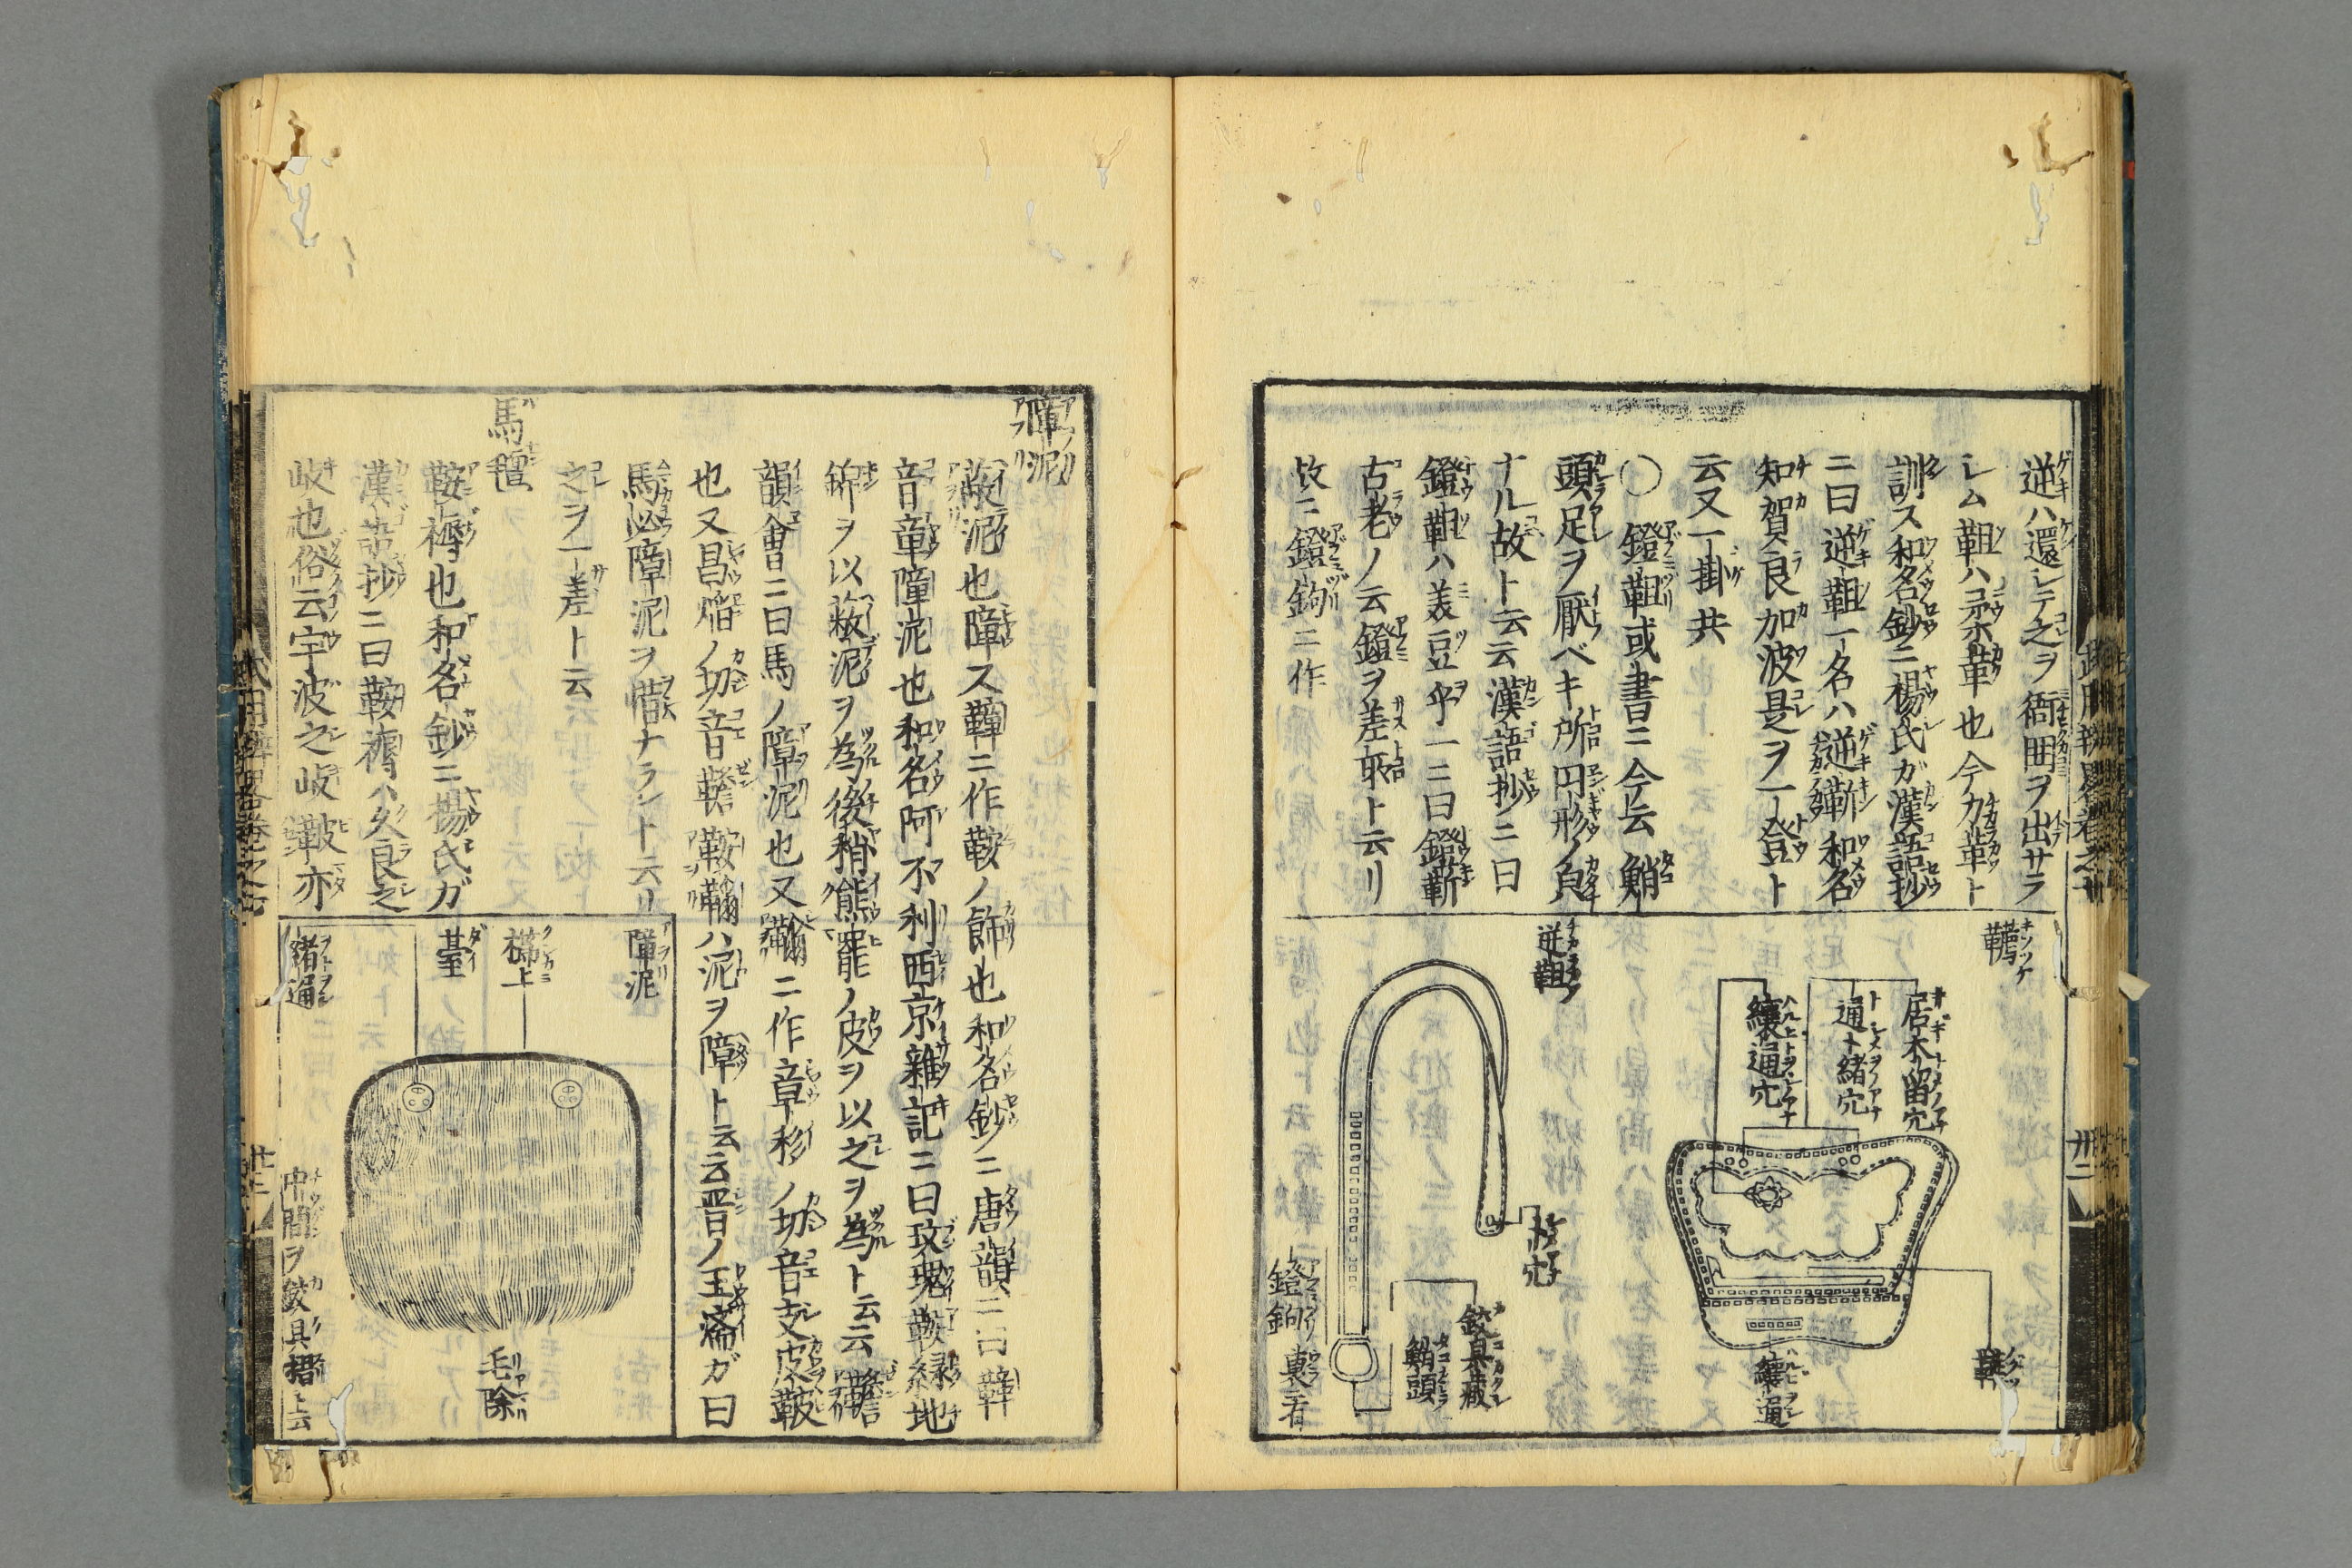 逆ハ還シテ之ヲ衞囲ヲ出サラ
シム靼ハ柔革也今力革ト
訓ス和名鈔ニ楊氏ガ漢語抄
ニ曰逆靼一名ハ逆靳和名
知賀良加波是ヲ一登ト
云又一掛共
〇鐙靼或書ニ今云鮹
頭足ヲ厭ベキ所円形ノ負
ナル故ト云云漢語抄ニ曰
鐙靼ハ美豆乎一ニ曰鐙靳
古老ノ云鐙ヲ差所ト云リ
故ニ鐙鉤ニ作
韉
居木留穴
通ト緒穴
纕通穴
纕通
逆靼
鉸具蔵
鮹頭
鐙鉤裏ニ有
障泥
蔽泥也障ス鞾ニ作鞍ノ飾也和名鈔ニ唐韻ニ曰鞾
音章障泥也和名阿不利西京雜記ニ曰玫瑰鞍緑地
錦ヲ以蔽泥ヲ為後稍熊羆ノ皮ヲ以之ヲ為ト云云韂
韻會ニ曰馬ノ障泥也又ニ作章移ノ切音支皮鞁
也又昌熖ノ切音韂鞍ハ泥ヲ障ト云云晋ノ王濟ガ曰
馬必障泥ヲ惜ナラント云リ
之ヲ一差ト云
馬氊
鞍褥也和名鈔ニ楊氏ガ
漢語抄ニ曰鞍褥ハ久良之
岐也俗云宇波之岐鞁亦
障泥
櫛上
基
緒通
毛除
中間ヲ鉸具摺ト云